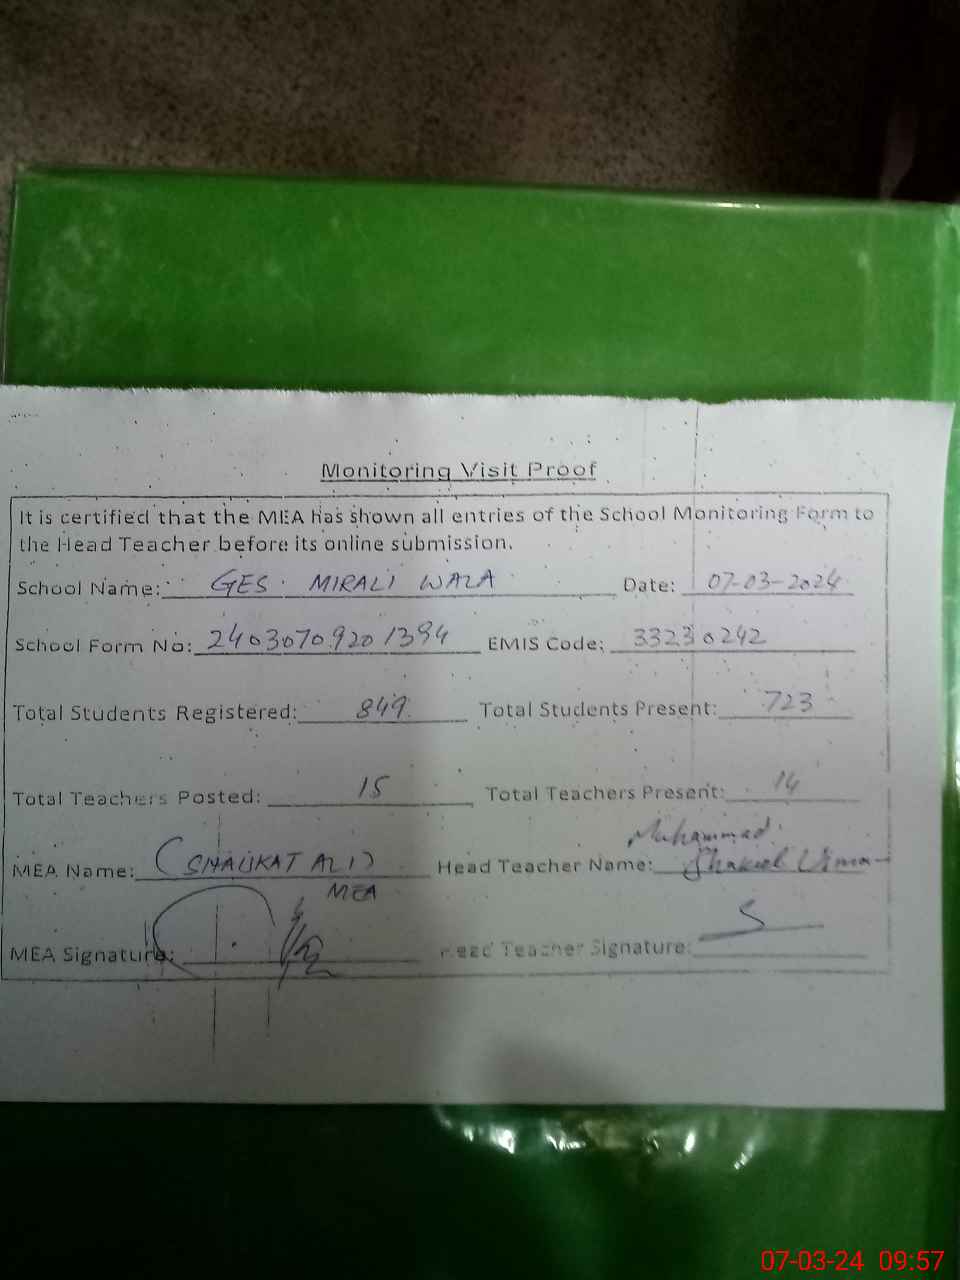 Monitoring Visit Proof
It is certified that the MEA has shown all entries of the School Monitoring Form to
the Head Teacher before its online submission.
School Name: GES. MIRALI WALA Date: 07-03-2024
School Form No: 24030709201394 EMIS Code: 33230242
Total Students Registered: 849 Total Students Present: 723
Total Teachers Posted: 15 Total Teachers Present: 14
Muhammad
MEA Name: (SHAUKAT ALI) Head Teacher Name: Shakeel
MEA
MEA Signature: Head Teacher Signature:
07-03-24 09:57